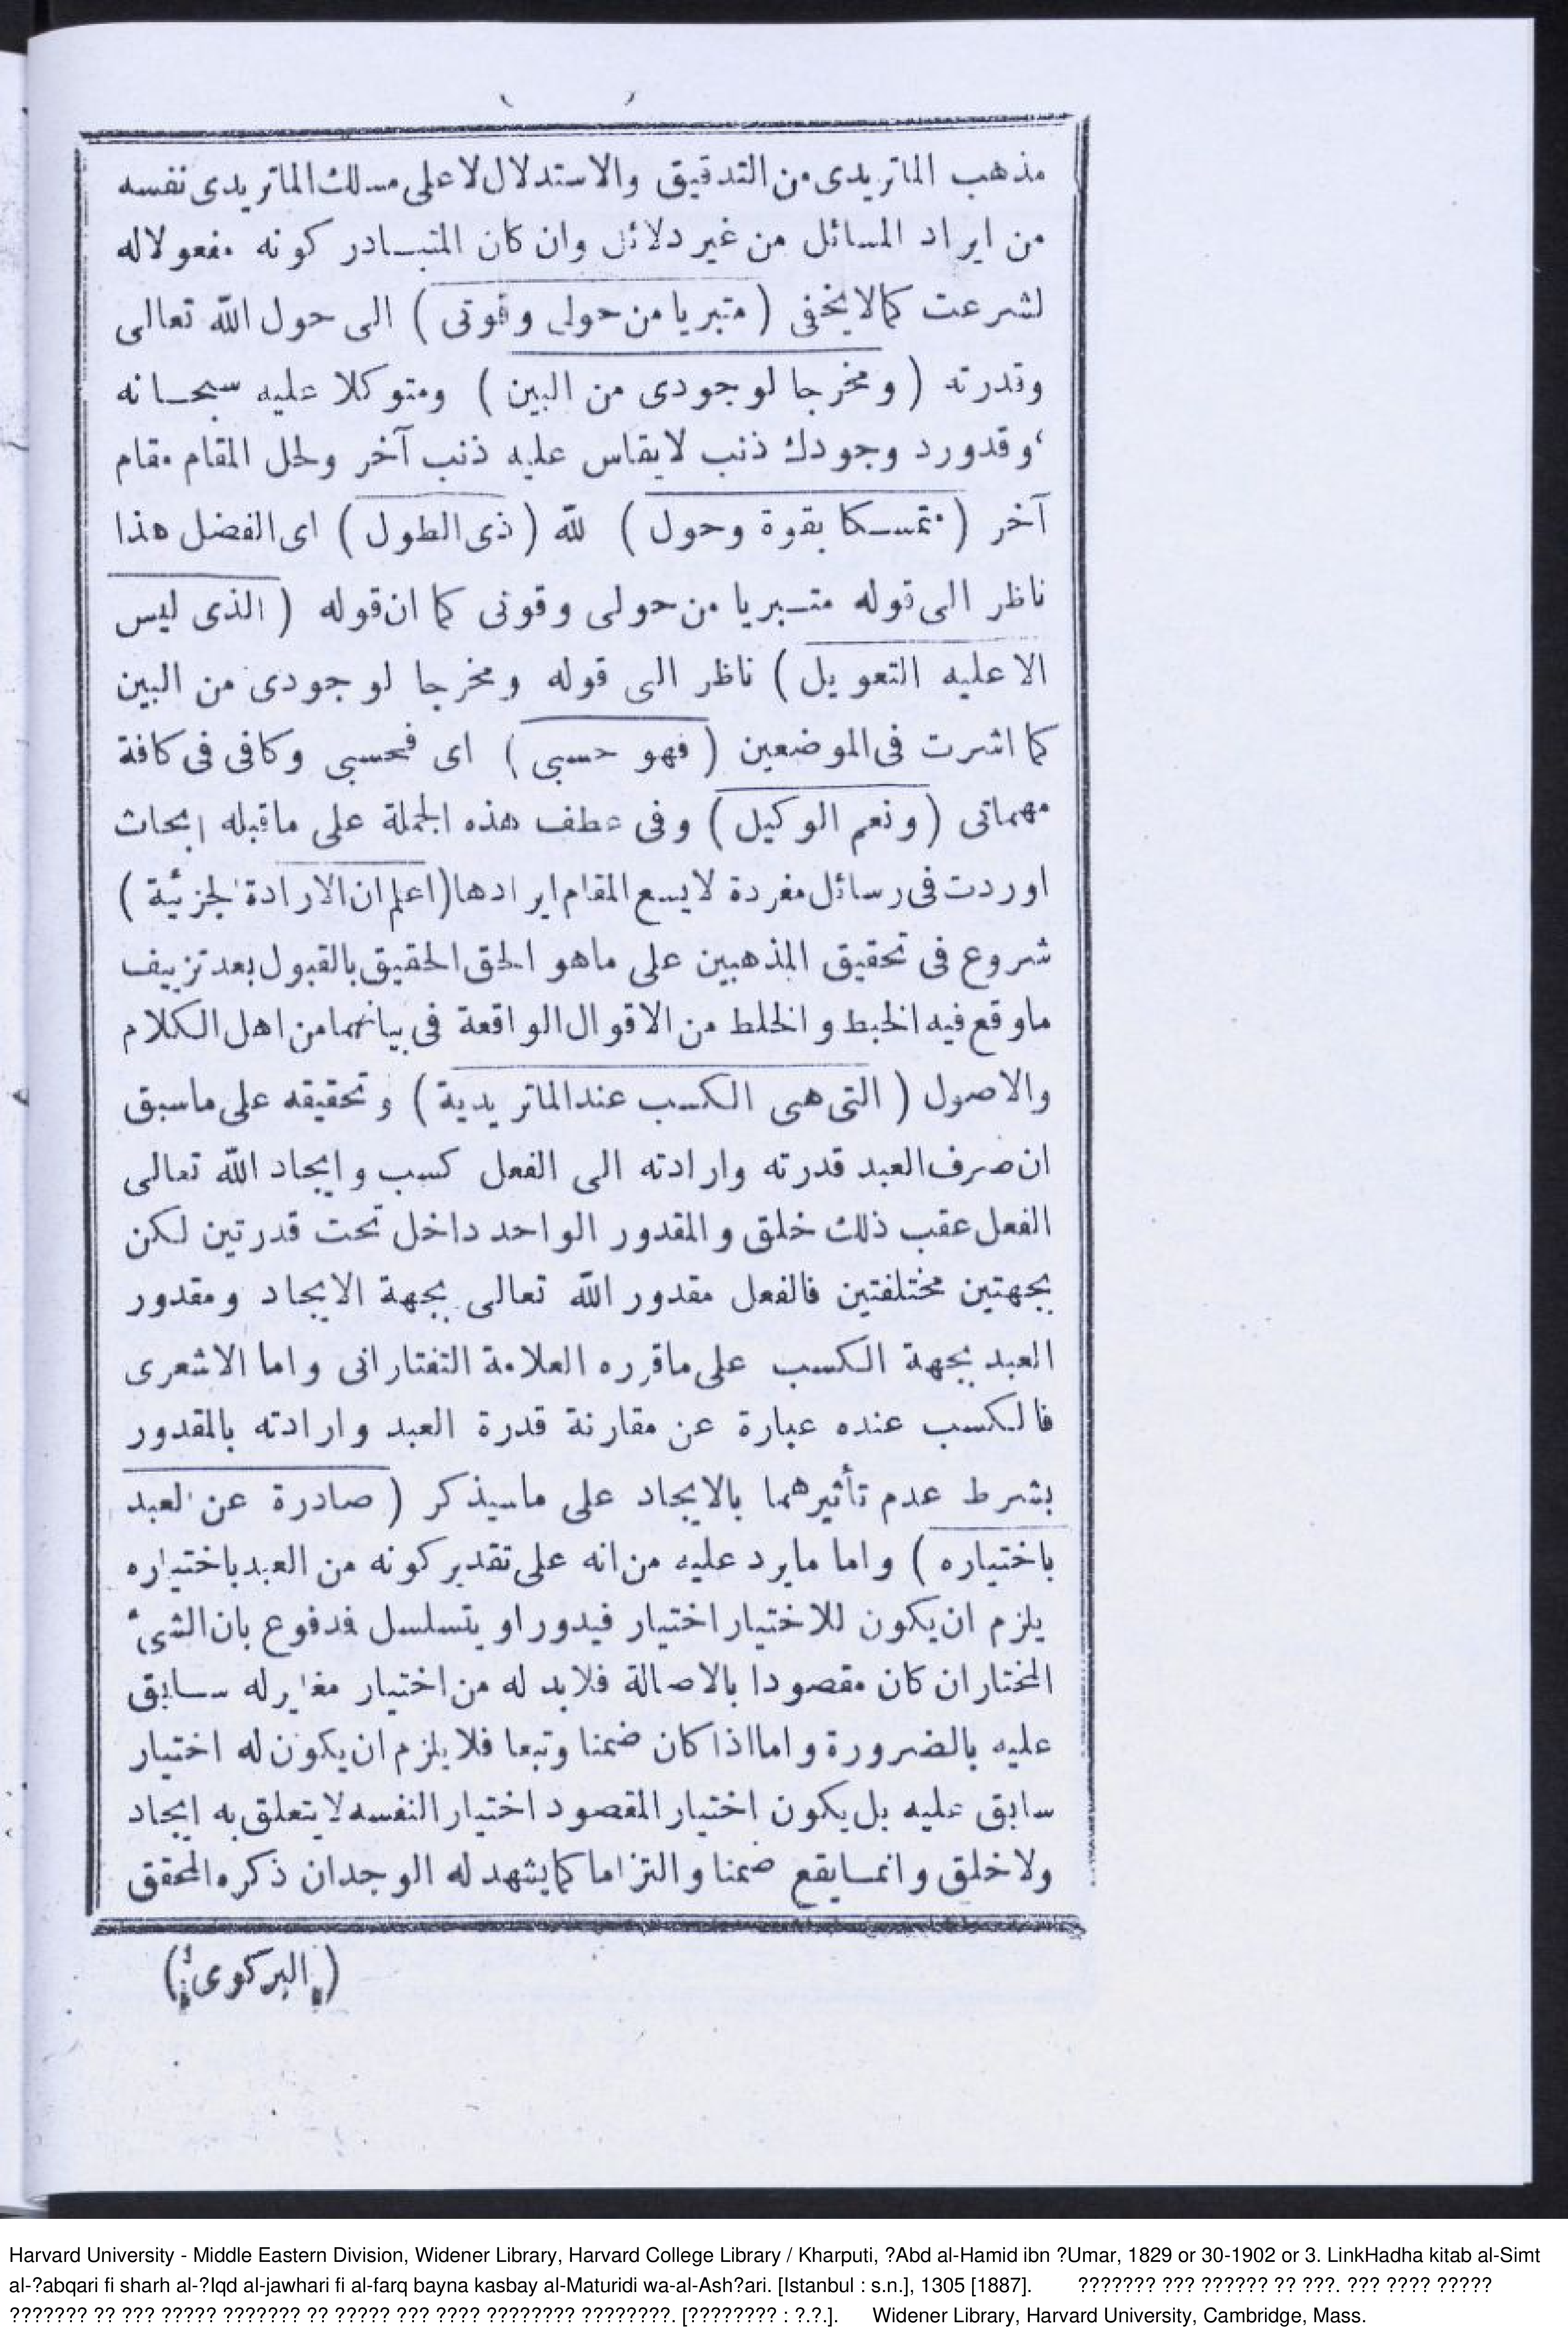 مذهب الماتريدى من التدقيق والاستدلال لا على مسلك الماتريدى نفسه
من ايراد المسائل من غير دلائل وان كان المتبادر كونه مفعولا له
لشرعت كمالايخفى (متبريا من حولى وقوتى) الى حول الله تعالى
وقدرته (ومخرجا لوجودى من البين) ومتوكلا عليه سبحانه
وقدورد وجودك ذنب لايقاس عليه ذنب آخر ولحل المقام مقام
آخر (متمسكا بقوة وحول) لله (ذى الطول) اى الفضل هذا
ناظر الى قوله متبريا من حولى وقوتى كما ان قوله (الذى ليس
الا عليه التعويل) ناظر الى قوله ومخرجا لوجودى من البين
كما اشرت فى الموضعين (فهو حسبى) اى فمحسبى وكافى فى كافة
مهماتى (ونعم الوكيل) وفى عطف هذه الجملة على ماقبله ابحاث
اوردت فى رسائل مفردة لايسع المقام ايرادها (اعلم ان الارادة الجزئية)
شروع فى تحقيق المذهبين على ماهو الحق الحقيق بالقبول بعد تزييف
ماوقع فيه الخبط والخلط من الاقوال الواقعة فى بيانهما من اهل الكلام
والاصول (التى هى الكسب عند الماتريدية) وتحقيقه على ماسبق
ان صرف العبد قدرته وارادته الى الفعل كسب وايجاد الله تعالى
الفعل عقب ذلك خلق والمقدور الواحد داخل تحت قدرتين لكن
بجهتين مختلفتين فالفعل مقدور الله تعالى بجهة الايجاد ومقدور
العبد بجهة الكسب على ماقرره العلامة التفتازانى واما الاشعرى
فالكسب عنده عبارة عن مقارنة قدرة العبد وارادته بالمقدور
بشرط عدم تأثيرهما بالايجاد على ماسيذكر (صادرة عن العبد
باختياره) واما مايرد عليه من انه على تقدير كونه من العبد باختياره
يلزم ان يكون للاختيار اختيار فيدور او يتسلسل فدفوع بان الشئ
المختار ان كان مقصودا بالاصالة فلابد له من اختيار مغاير له سابق
عليه بالضرورة واما اذا كان ضمنا وتبعا فلا يلزم ان يكون له اختيار
سابق عليه بل يكون اختيار المقصود اختيار النفسه لا يتعلق به ايجاد
ولا خلق وانما يقع ضمنا والتزاما كما يشهد له الوجدان ذكره المحقق
(البركوى)
Harvard University - Middle Eastern Division, Widener Library, Harvard College Library / Kharputi, ?Abd al-Hamid ibn ?Umar, 1829 or 30-1902 or 3. LinkHadha kitab al-Simt
al-?abqari fi sharh al-?Iqd al-jawhari fi al-farq bayna kasbay al-Maturidi wa-al-Ash?ari. [Istanbul : s.n.], 1305 [1887]. ??????? ??? ?????? ?? ???. ??? ???? ?????
??????? ?? ??? ????? ??????? ?? ????? ??? ???? ???????? ????????. [???????? : ?.?.]. Widener Library, Harvard University, Cambridge, Mass.